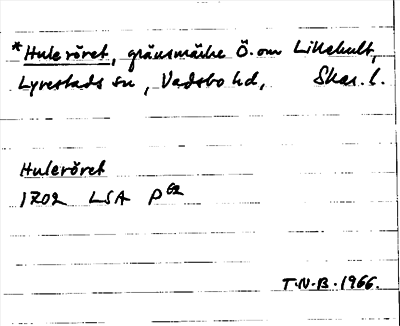 *Huleröret, gränsmärke Ö. om Lillehult,
Lyrestads sn, Vadsbo hd, Skar. l.
Huleröret
1702 LSA P62
T.N.B. 1966.